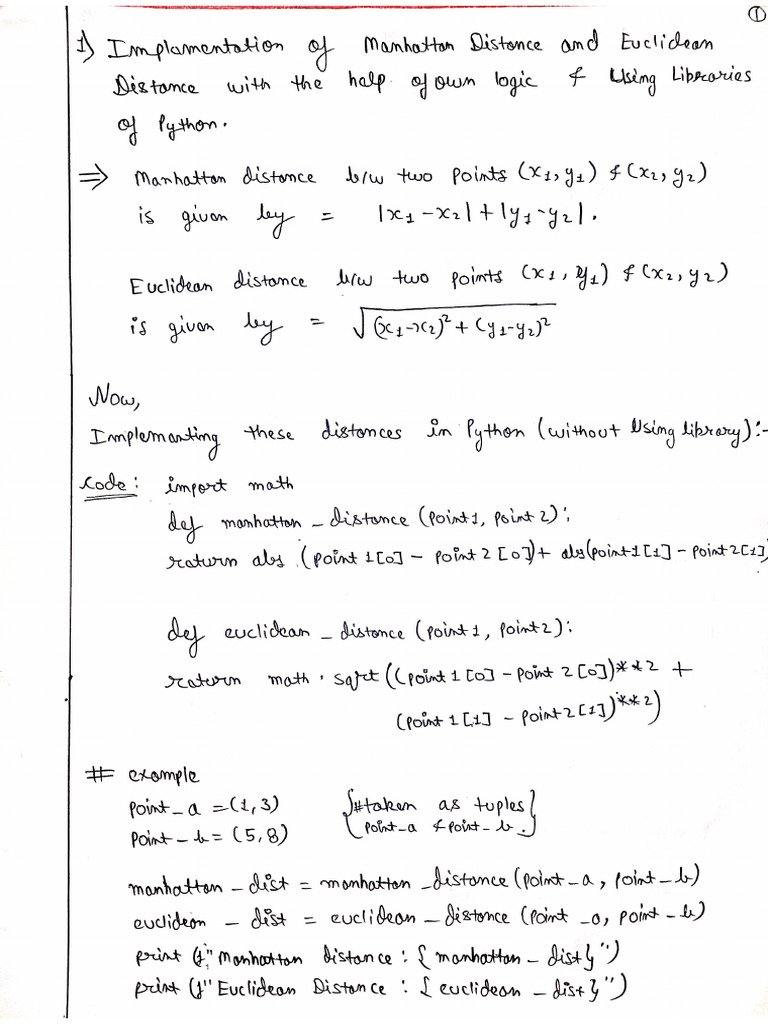 ①
1) Implamentation of Manhattan Distance and Euclidean
Distance with the help of own logic & Using Libraries
of Python.
⇒ Manhattan distance b/w two points (x1, y1) & (x2, y2)
is given by = |x1 - x2| + |y1 - y2|.
Euclidean distance b/w two points (x1, y1) & (x2, y2)
is given by = √(x1-x2)² + (y1-y2)²
Now,
Implementing these distances in Python (without Using library):-
Code: import math
def manhattan_distance (point1, point2):
return abs (point1[0] - point2[0]) + abs(point1[1] - point2[1]
def euclidean_distance (point1, point2):
return math.sqrt((point1[0] - point2[0])**2 +
(point1[1] - point2[1])**2)
# example
point_a = (1, 3) {#taken as tuples
point_b = (5, 8) point_a & point_b.}
manhattan_dist = manhattan_distance (point_a, point_b)
euclidean_dist = euclidean_distance (point_a, point_b)
print (f"Manhattan distance: {manhattan_dist}")
print (f"Euclidean Distance: {euclidean_dist}")